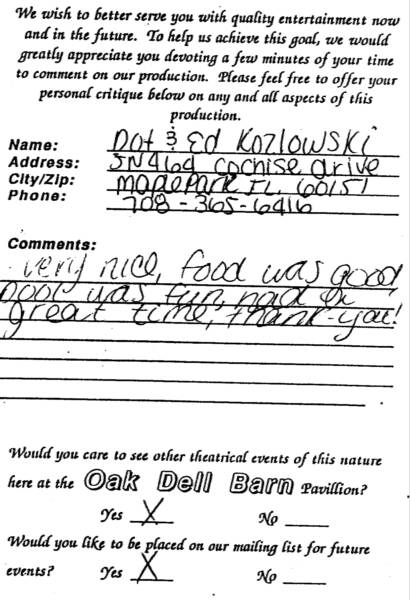 We wish to better serve you with quality entertainment now
and in the future. To help us achieve this goal, we would
greatly appreciate you devoting a few minutes of your time
to comment on our production. Please feel free to offer your
personal critique below on any and all aspects of this
production.
Name: Dot & Ed Kozlowski
Address: 5N464 Cochise drive
City/Zip: Maple Park IL 60151
Phone: 708-365-6416
Comments:
very nice, food was good
was fun, had a
great time, thank-you!
Would you care to see other theatrical events of this nature
here at the Oak Dell Barn Pavillion?
Yes X No
Would you like to be placed on our mailing list for future
events? Yes X No